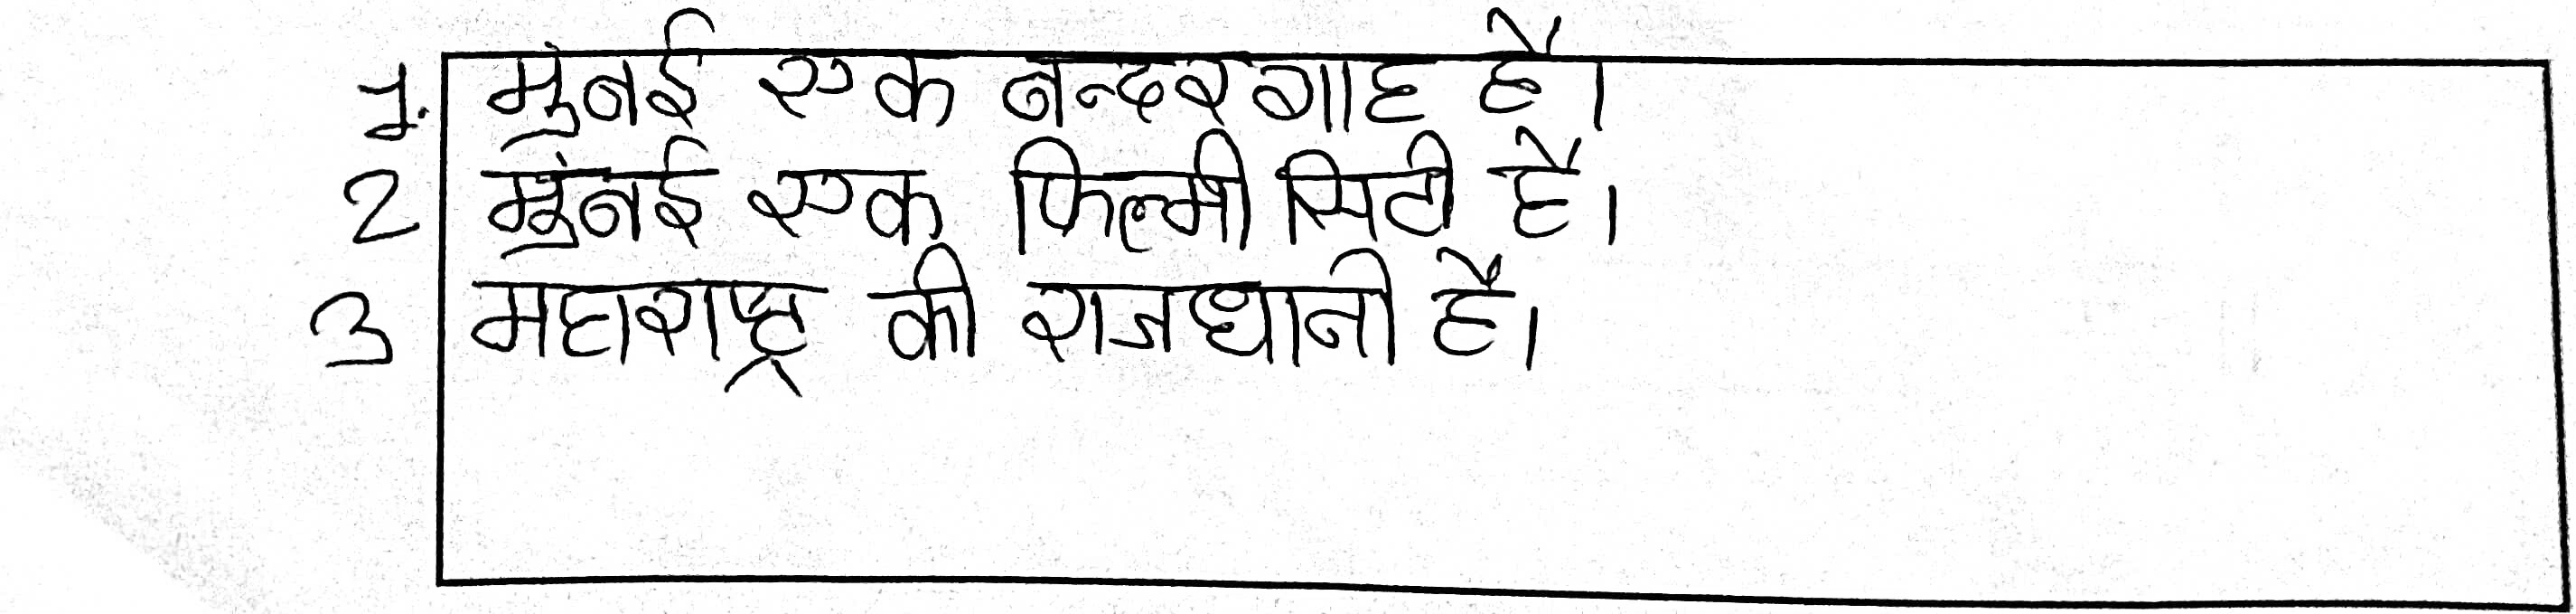 1. मुंबई एक बन्दरगाह है।
2 मुंबई एक फिल्मी सिटी है।
3 महाराष्ट्र की राजधानी है।